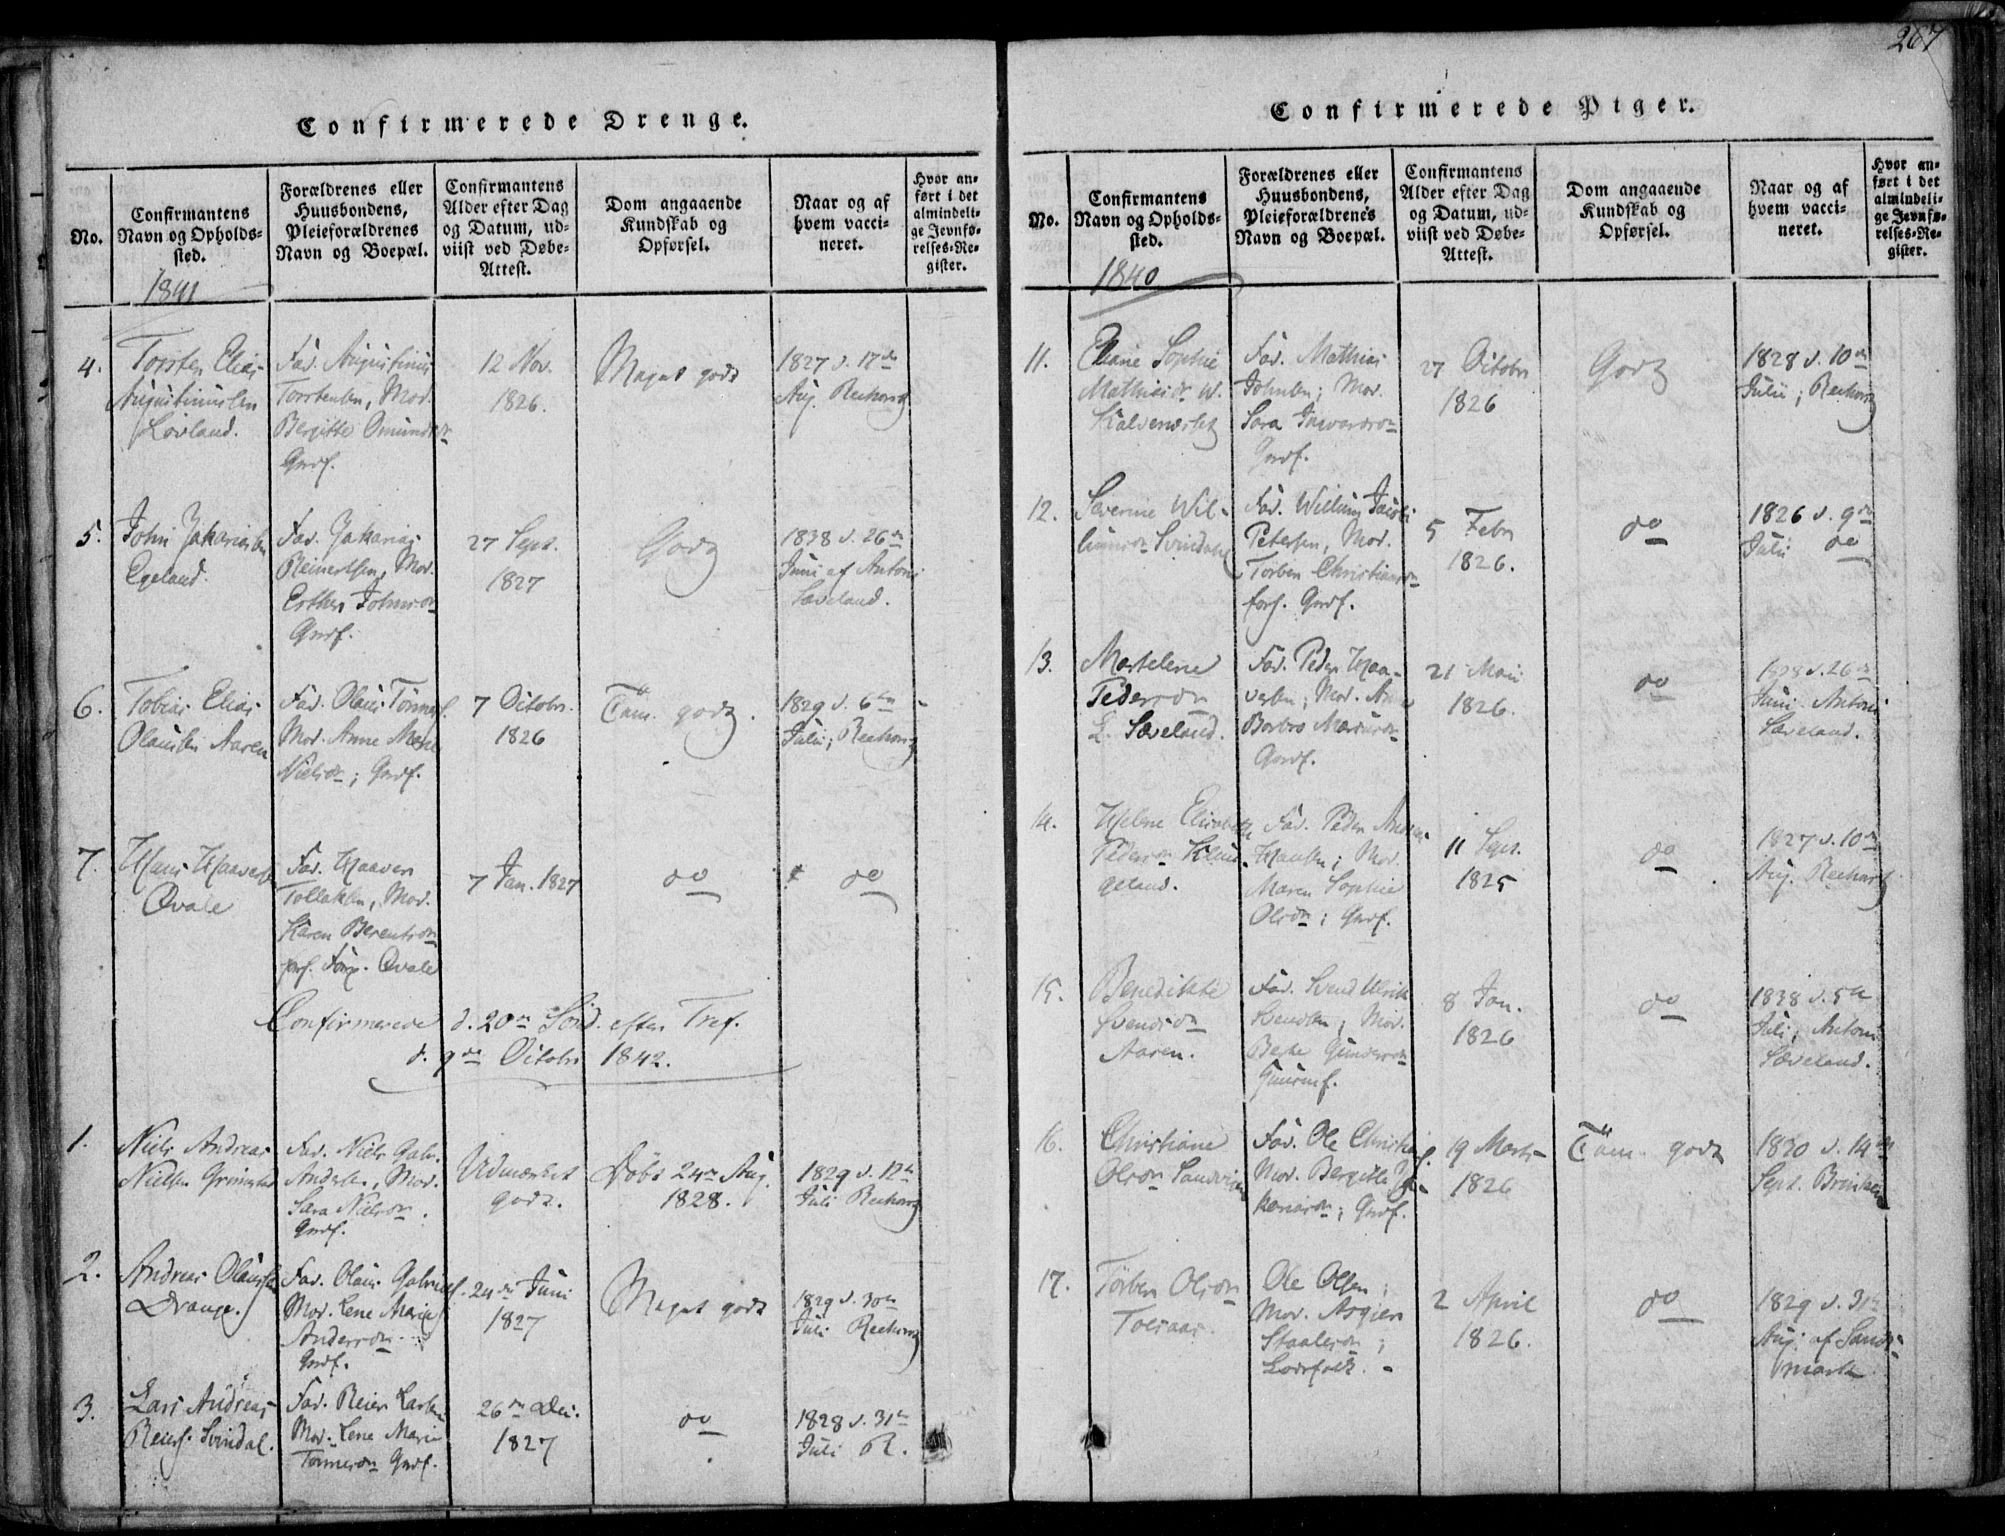 267
Confirmerede Drenge.
No.
Confirmantens
Navn og Opholds-
sted.
Forældrenes eller
Huusbondens,
Pleieforældrenes
Navn og Boepæl.
Confirmantens
Alder efter Dag
og Datum, ud-
viist ved Døbe-
Attest.
Dom angaaende
Kundskab og
Opførsel.
Naar og af
hvem vacci-
neret.
Hvor an-
ført i det
almindeli-
ge Jevnfø-
relses-Re-
gister.
1841
4.
Torsten Elias
Augustinussen
Løvland.
Fad. Augustinus
Torstensen, Mod.
Bergitte Omundsdn
Grdf.
12 Nov.
1826.
Meget godt
1827 d. 17de
Aug. Rechortz
5.
John Zakariassen
Egeland.
Fad. Zakarias
Reinertsen, Mod.
Esther Johnsdn
Grdf.
27 Sept.
1827
Godt
1838 d. 26n
Juni af Antoni
Sæveland.
6.
Tobias Elias
Olaussen Aaren
Fad. Olaus Tønnesf.
Mod. Anne Marie
Nielsdn; Grdf.
7 Octobr.
1826
Tæm. godt.
1829 d. 6te
Julii; Rechortz
7.
Hans Haavers
Qvale
Fad. Haaver
Tollaksen, Mod.
Karen Berentsdn
Qvale
7 Jan. 1827
do
do
Confirmerede d. 20n Sønd. efter Tref.
d. 9de Octobr 1842.
1.
Niels Andreas
Nielsen Grimestad
Fad. Niels Gabr.
Anders., Mod.
Sara Nielsdn.
Grdf.
Udmærket
godt.
Døbt 24n Aug.
1828.
1829 d. 12te
Juli Rechortz
2.
Andreas Olaussen
Drange.
Fad. Olaus Gabrielf.
Mod. Lene Marie
Andersdn.
Grdf.
24de Juni
1827
Meget godt
1829 d. 30te
Juli Rechortz
3.
Lars Andreas
Reiersf. Svindal.
Fad. Reier Larsen
Mod. Lene Marie
Tønnesdn Grdf.
26de Dec.
1827
do
1828 d. 31te
Juli R.
Confirmerede Piger.
No.
Confirmantens
Navn og Opholds-
sted.
Forældrenes eller
Huusbondens,
Pleieforældrenes
Navn og Boepæl.
Confirmantens
Alder efter Dag
og Datum, ud-
viist ved Døbe-
Attest.
Dom angaaende
Kundskab og
Opførsel.
Naar og af
hvem vacci-
neret.
Hvor an-
ført i det
almindeli-
ge Jevnfø-
relses-Re-
gister.
1840
11.
Sophie
Mathiasdn
Fad. Mathias
Johnsen; Mod.
Sara Ingvardsdn
Grdf.
27 Octobr
1826
Godt
1828 d. 10de
Julii; Rechortz
12.
Severine Wil-
lumsdn Svindahl
Fad. Willum Jacob
Petersen, Mod.
Torben Christiansdn
Grdf.
5 Febr
1826.
do
1826 d. 9de
Julii do
13.
Martelene
Pedersdn
L. Sæveland.
Fad. Peder Haa-
versen; Mod. Anne
Barbro Mariusdn
Grdf.
21 Mai
1826.
do
1828 d. 26n
Juni Antoni
Sæveland.
14.
Helene Elisabeth
Pedersdn
Fad. Peder Andreas
Hansen; Mod.
Maren Sophie
Olsdn; Grdf.
11 Sept.
1825
do
1827 d. 10de
Aug. Rechortz
15.
Benedikte
Svendsdn
Aaren.
Fad. Svend Ulrik
Svendsen; Mod.
Berte Gundersdn
8 Jan.
1826
do
1838 d. 5te
Juli, Antoni
Sæveland.
16.
Christiane
Olsdn Sandvigen
Fad. Ole Christianf.
Mod. Bergitte Za-
kariasdn; Grdf.
19 Marts
1826
Tæm. godt
1830 d. 14de
Sept.
17.
Torben Olsdn
Ole Olsen;
Mod. Asgjer
Staalesdn;
2 April
1826.
do
1829 d. 31te
Aug. af Sand-
mark